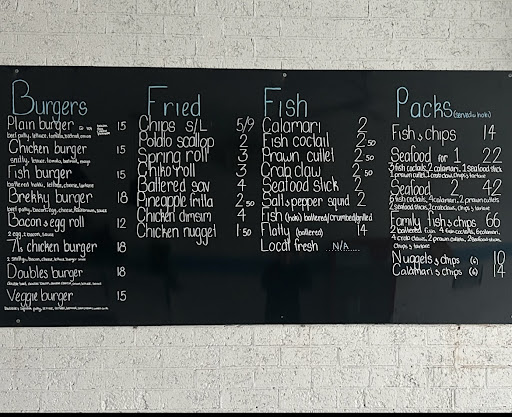 Burgers
Plain burger 15
beef patty, lettuce, tomato, beetroot, onion
Chicken burger 15
Fish burger 15
battered hoki, lettuce, cheese, tartare
Brekky burger 18
Bacon & egg roll 12
2 egg, 2 bacon, sauce
7's chicken burger 18
Doubles burger 18
Veggie burger 15
Fried
Chips S/L 5/9
Potato scallop 2
Spring roll 3
Chiko roll 3
Battered sav 4
Pineapple fritta 2.50
Chicken dimsim 4
Chicken nugget 1.50
Fish
Calamari 2
Fish coctail 2.50
Prawn cutlet 2.50
Crab claw 2
Seafood stick 2
Salt & pepper squid 2
Fish (hoki) battered/crumbed/grilled
Flatty (battered) 14
Local fresh ...N/A...
Packs (served w hoki)
Fish & chips 14
Seafood for 1 22
fish coctails, 2 calamari, 1 seafood stick
2 prawn cutlet, 1 crab claw, chips & tartare
Seafood 2 42
fish coctails, 4 calamari, 2 prawn cutlets,
2 seafood sticks, 2 crab claws, chips & tartare
Family fish & chips 66
2 battered fish 4 fish coctails, 6 calamari,
4 crab claws, 2 prawn cutlets, 2 seafood sticks,
Chips & tartare
Nuggets & chips (6) 10
Calamari & chips (6) 14